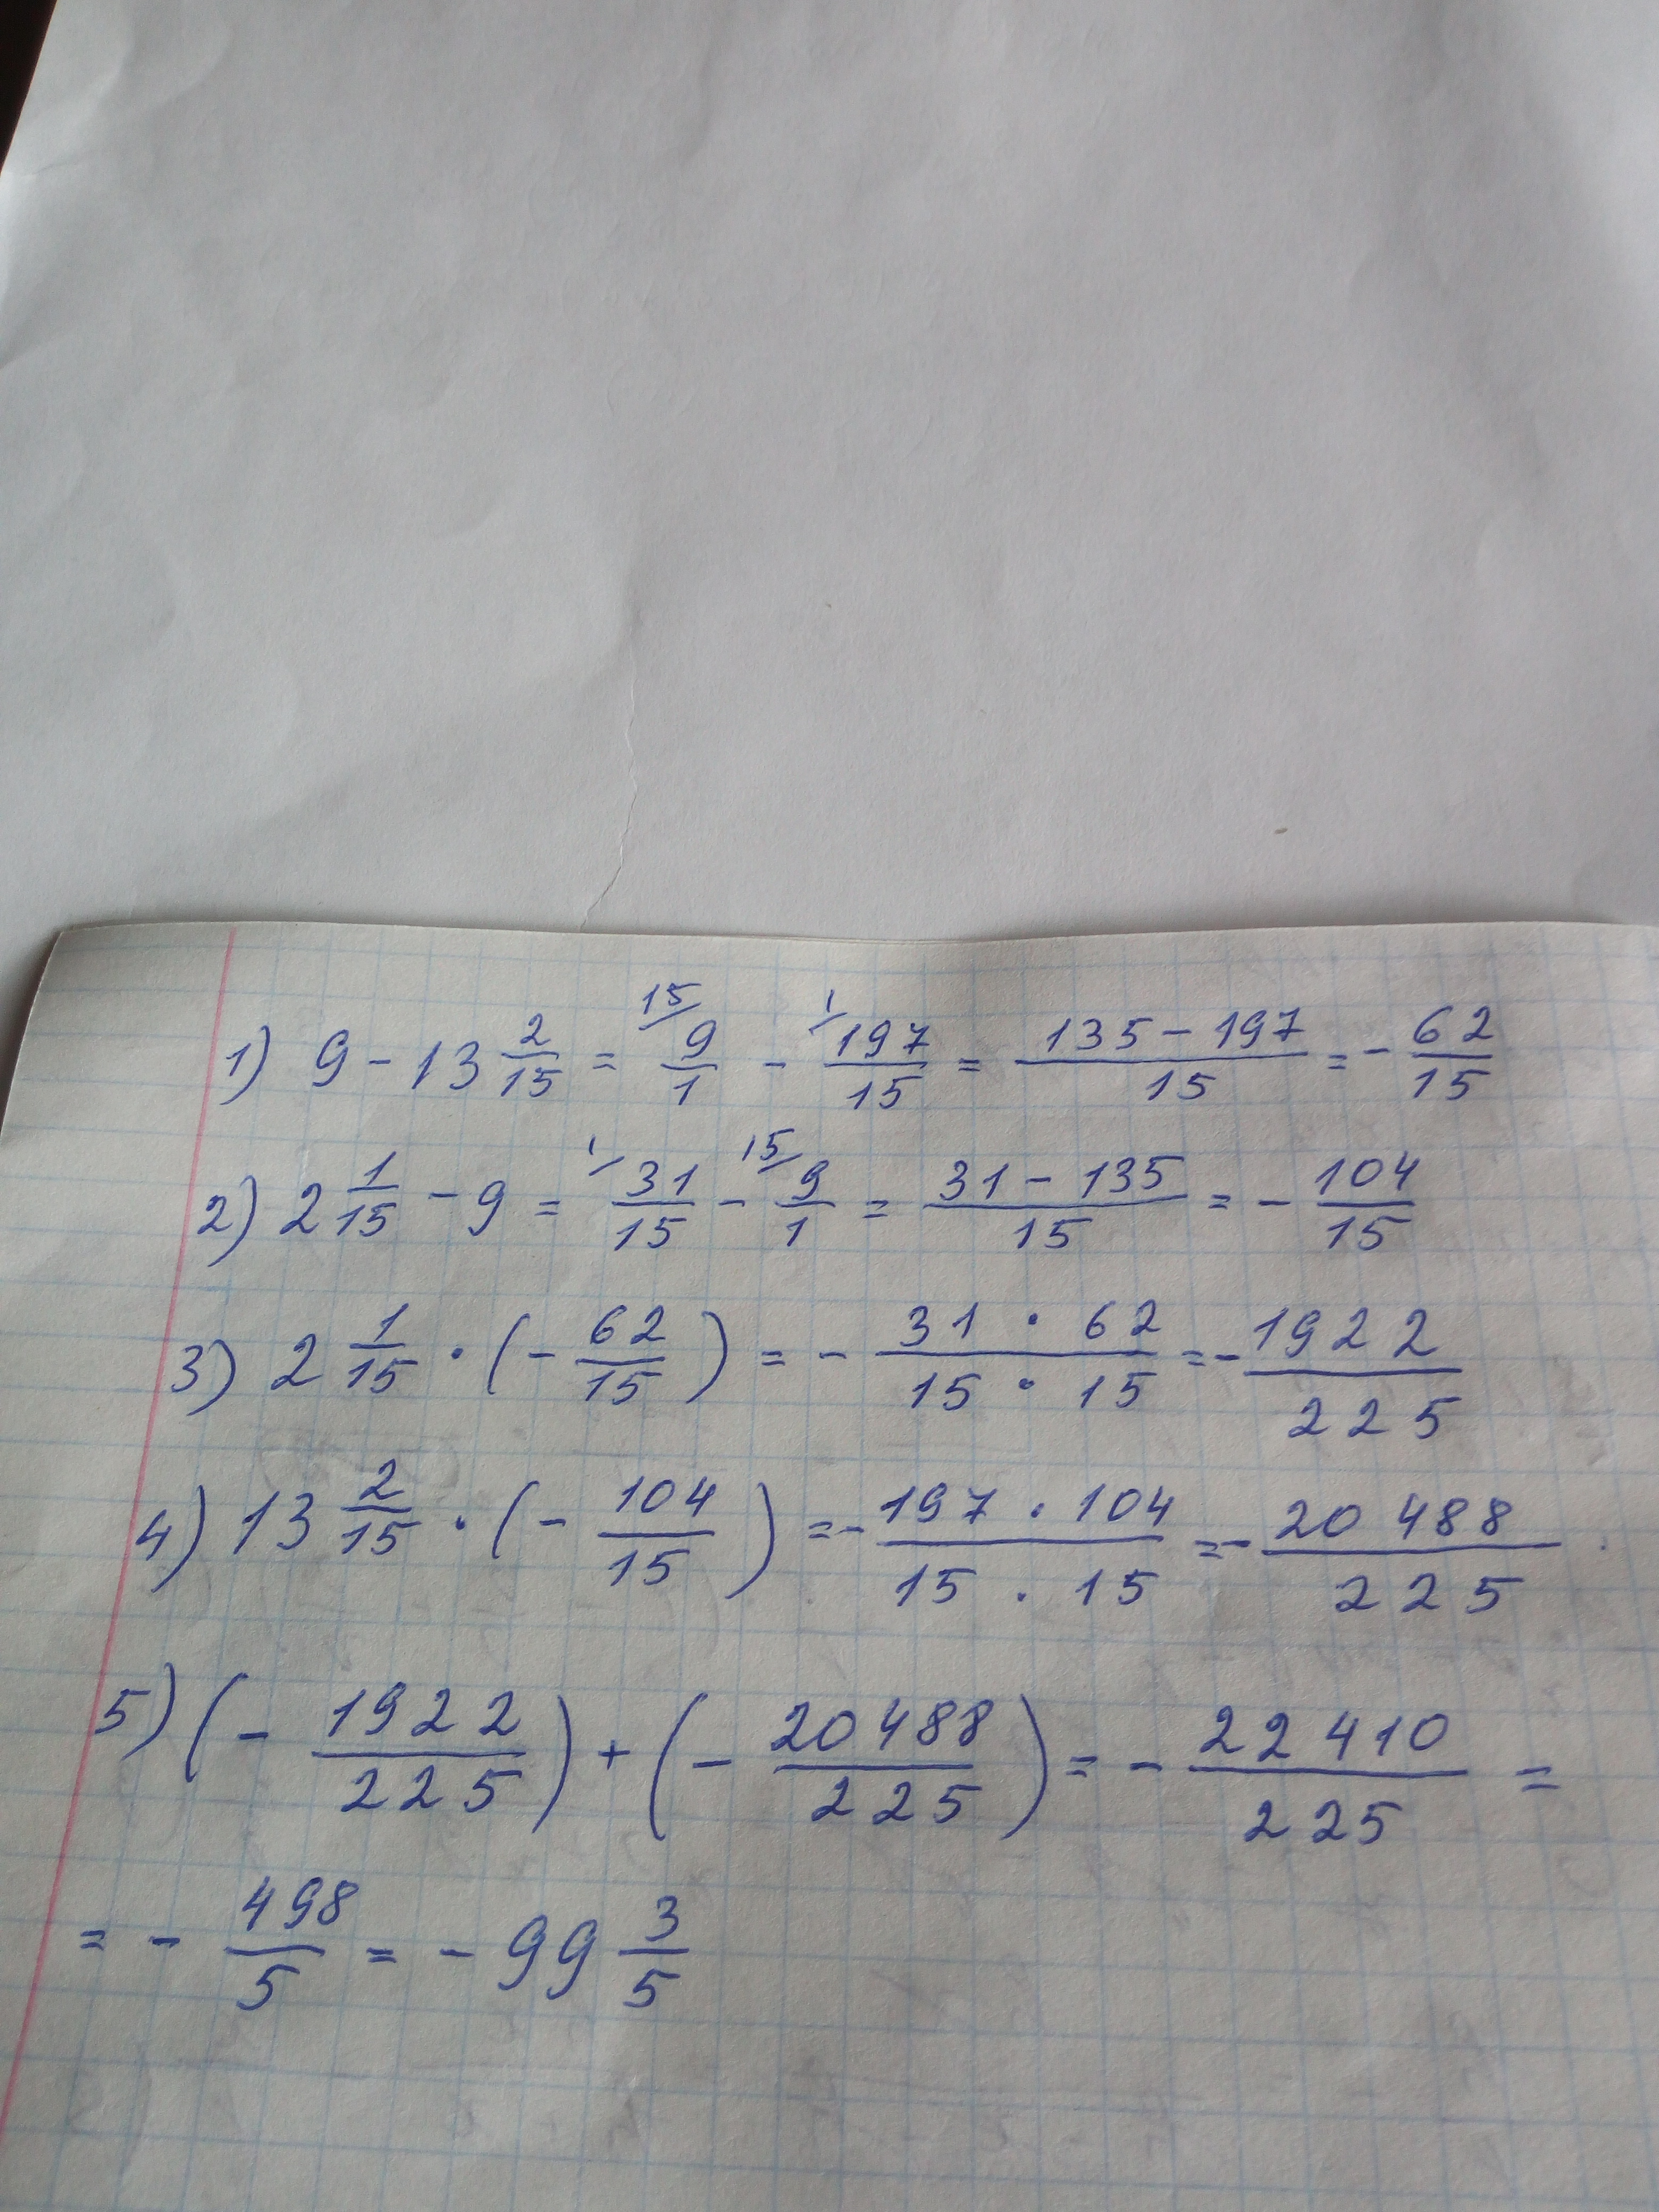 1) 9 - 13 2/15 = 15/ 9/1 - 1/ 197/15 = 135 - 197/15 = - 62/15
2) 2 1/15 - 9 = 1/ 31/15 - 15/ 9/1 = 31 - 135/15 = - 104/15
3) 2 1/15 · (- 62/15) = - 31 · 62/15 · 15 = - 1922/225
4) 13 2/15 · (- 104/15) = - 197 · 104/15 · 15 = - 20 488/225
5) (- 1922/225) + (- 20488/225) = - 22410/225 =
= - 498/5 = - 99 3/5